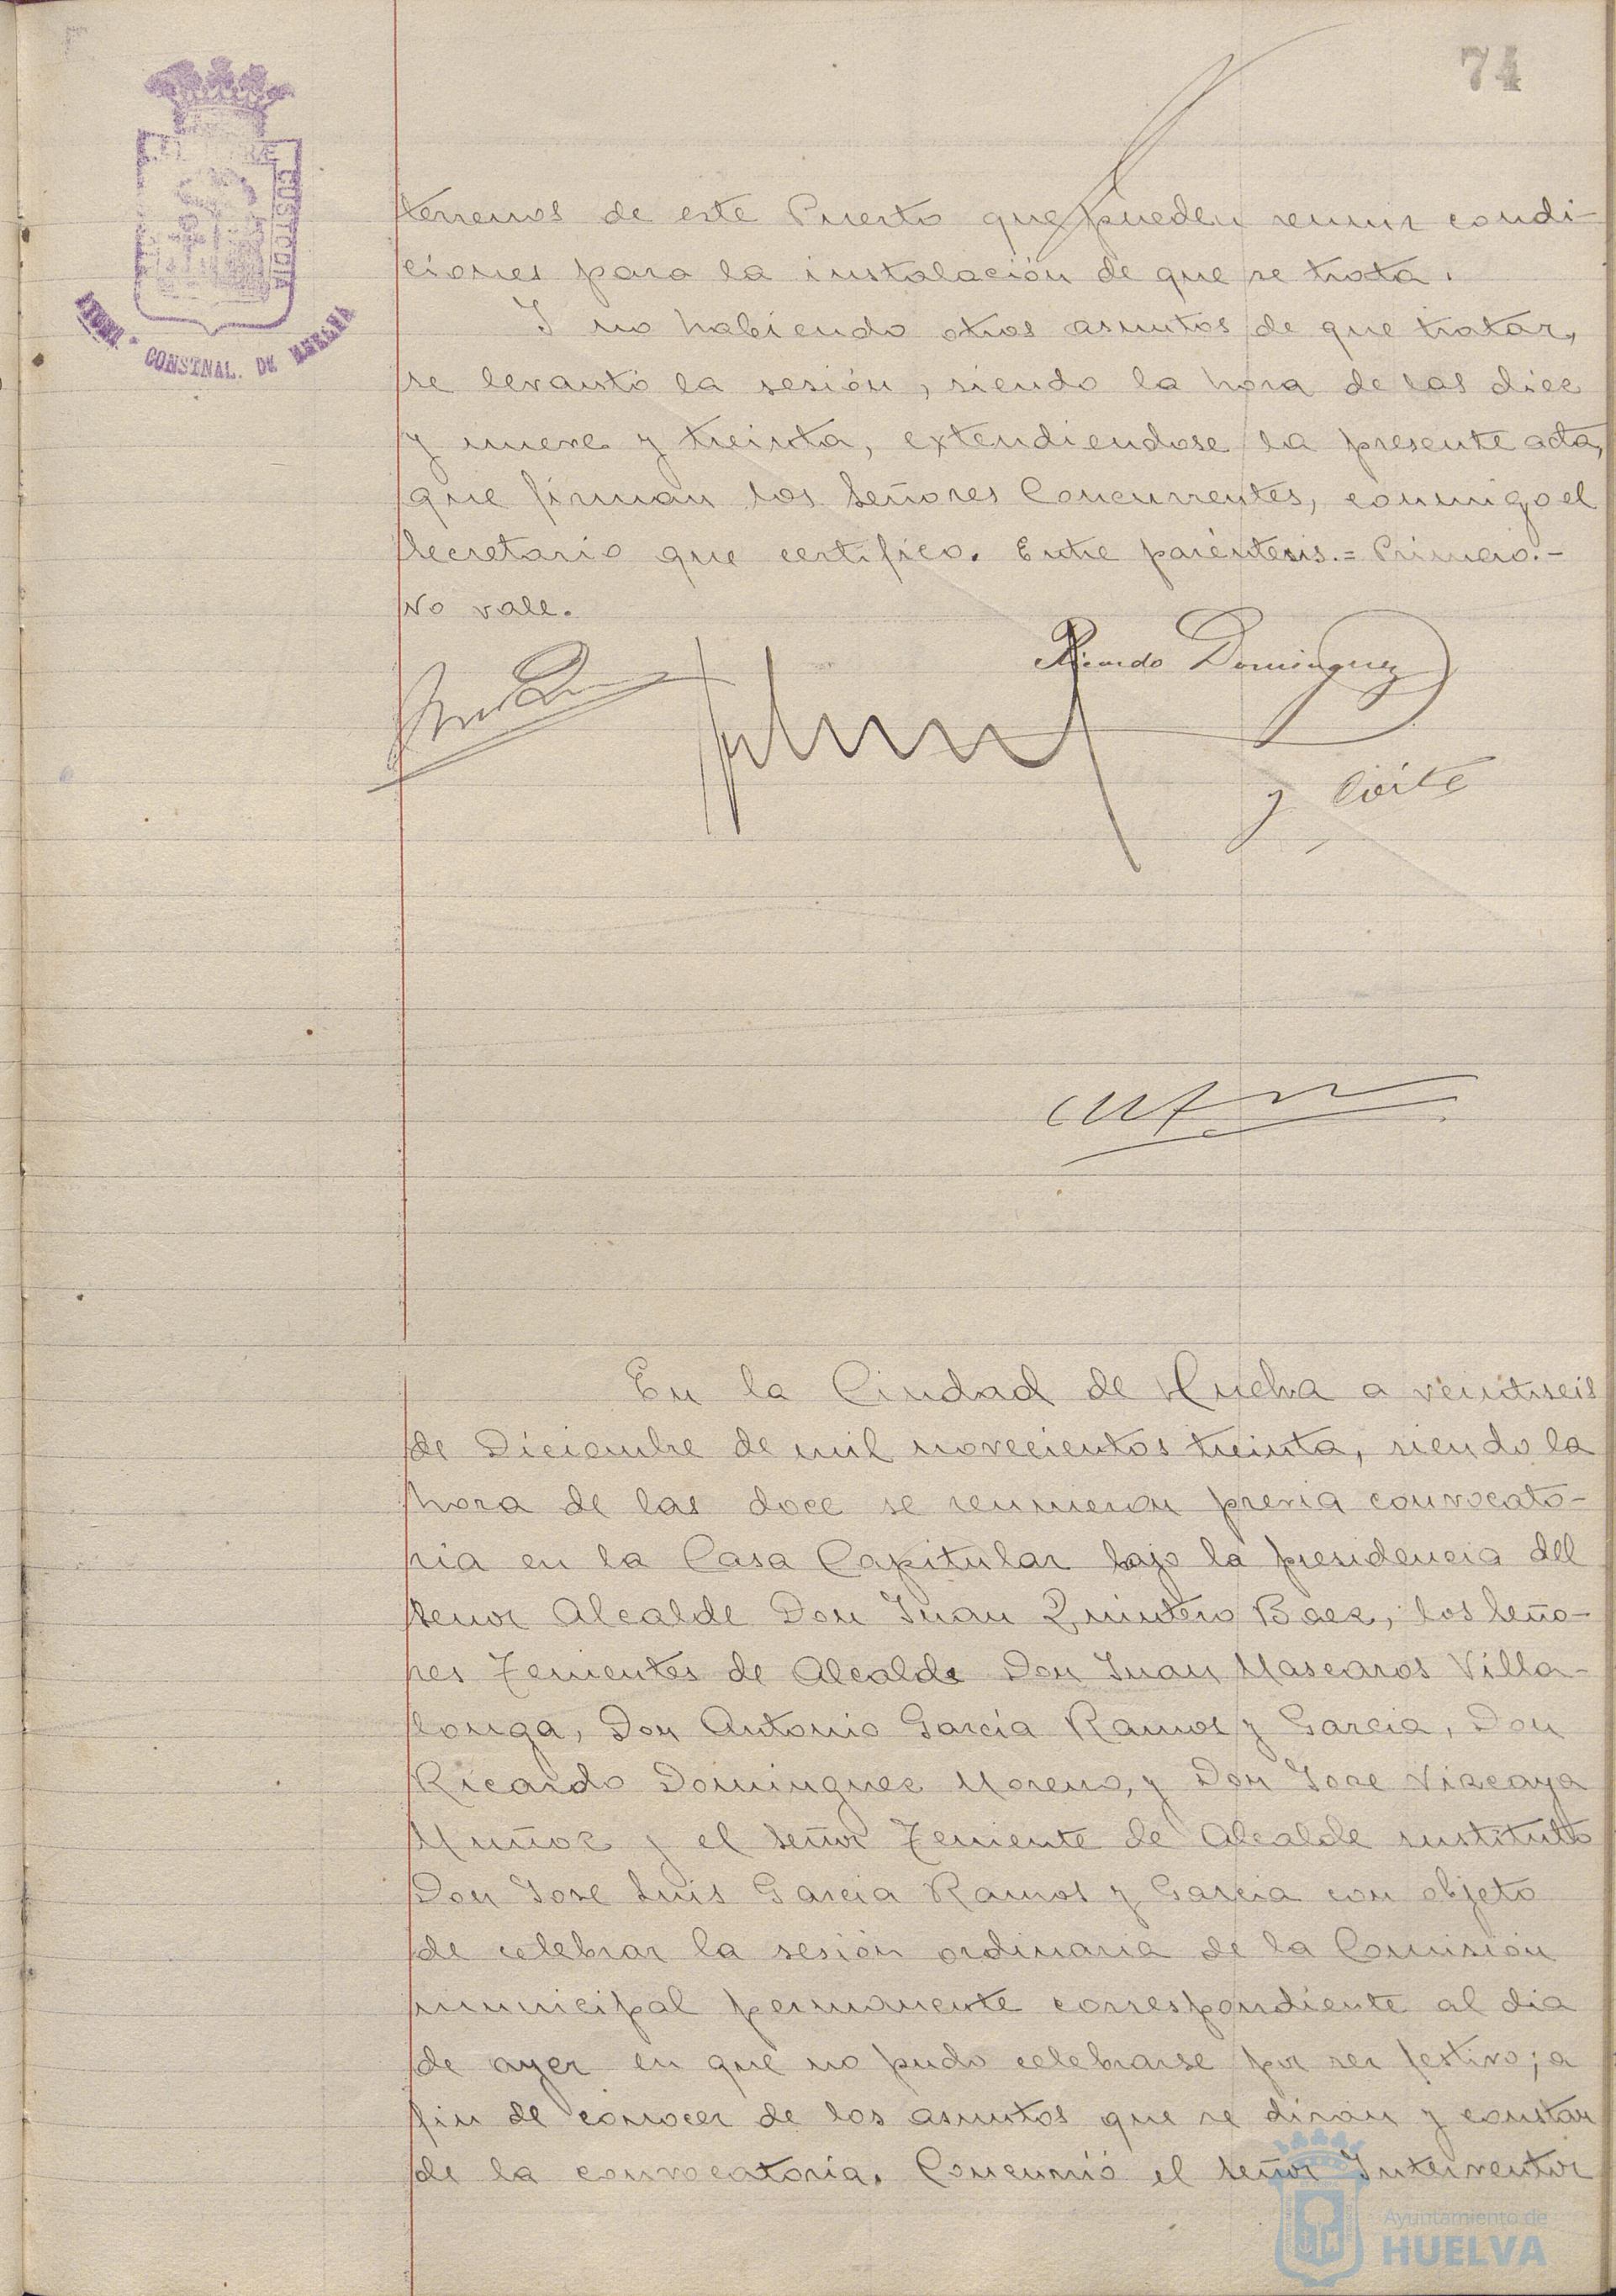 74
PORTUS MARIS
CUSTODIA
CONSTNAL. DE HUELVA
terrenos de este Puerto que pueden reunir condi-
ciones para la instalación de que se trata.
Y no habiendo otros asuntos de que tratar,
se levantó la sesión, siendo la hora de las diez
y nueve y treinta, extendiendose la presente acta,
que firman los Señores Concurrentes, conmigo el
Secretario que certifico. Entre paréntesis.= Primero.-
No vale.
Ricardo Dominguez
y Corte
En la Ciudad de Huelva a veintiseis
de Diciembre de mil novecientos treinta, siendo la
hora de las doce se reunieron previa convocato-
ria en la Casa Capitular bajo la presidencia del
Señor Alcalde Don Juan Quintero Baez, los Seño-
res Tenientes de Alcalde Don Juan Mascaros Villa-
longa, Don Antonio García Ramos y Garcia, Don
Ricardo Dominguez Moreno, y Don Jose Vizcaya
Muñoz y el Señor Teniente de Alcalde sustituto
Don Jose Luis Garcia Ramos y Garcia con objeto
de celebrar la sesión ordinaria de la Comisión
municipal permanente correspondiente al dia
de ayer en que no pudo celebrarse por ser festivo; a
fin de conocer de los asuntos que se diran y constan
de la convocatoria. Concurrió el Señor Interventor
Ayuntamiento de
HUELVA